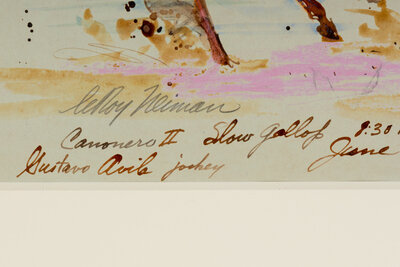 LeRoy Neiman
Canonero II Slow Gallop 9:30
Gustavo Avila jockey June